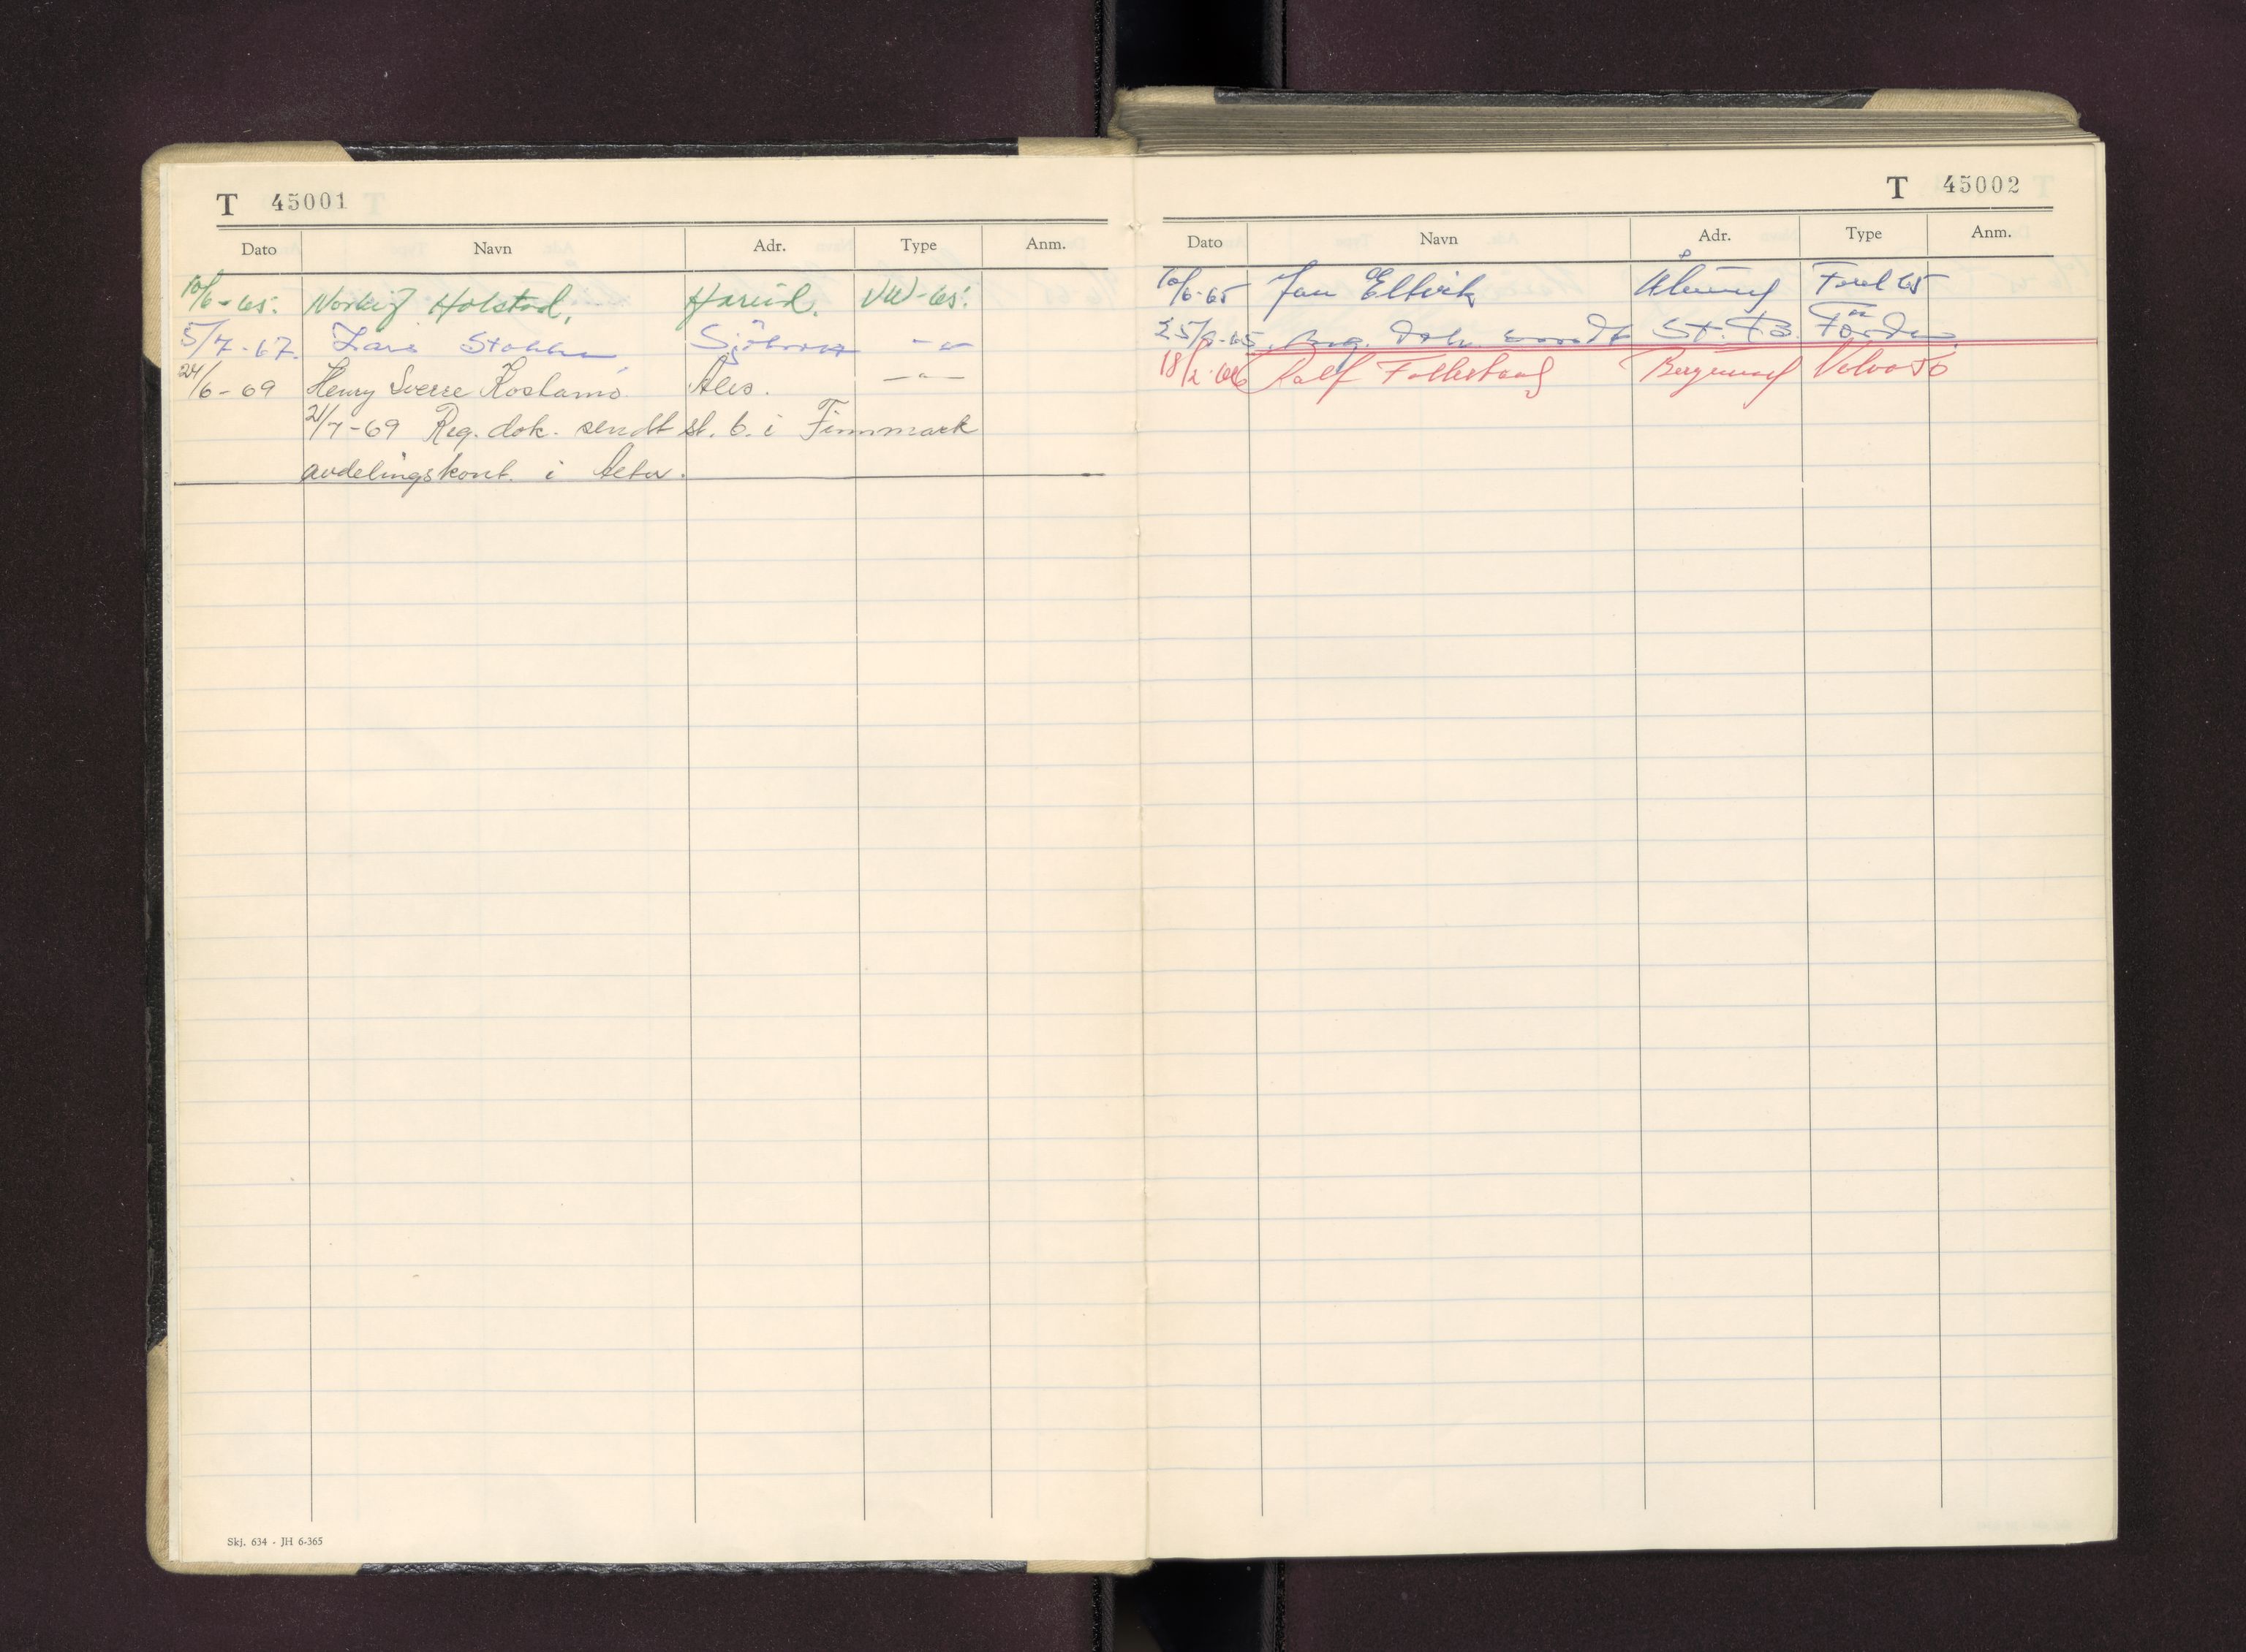 T 45001
Dato Navn Adr. Type Anm.
10/6-65. Holstad, Hareid. VW-65.
5/7-67. Lars
24/6-69 Henry Sverre Kostamo. Ales. —"—
21/7-69 Reg. dok. sendt st. b. i Finnmark
avdelingskont. i
Skj. 634 - JH 6-365
T 45002
Dato Navn Adr. Type Anm.
10/6-65 Jan Ford 65
25/8-65. Reg. dok. sendt St. B.
18/2-66 Ralf Volvo 56